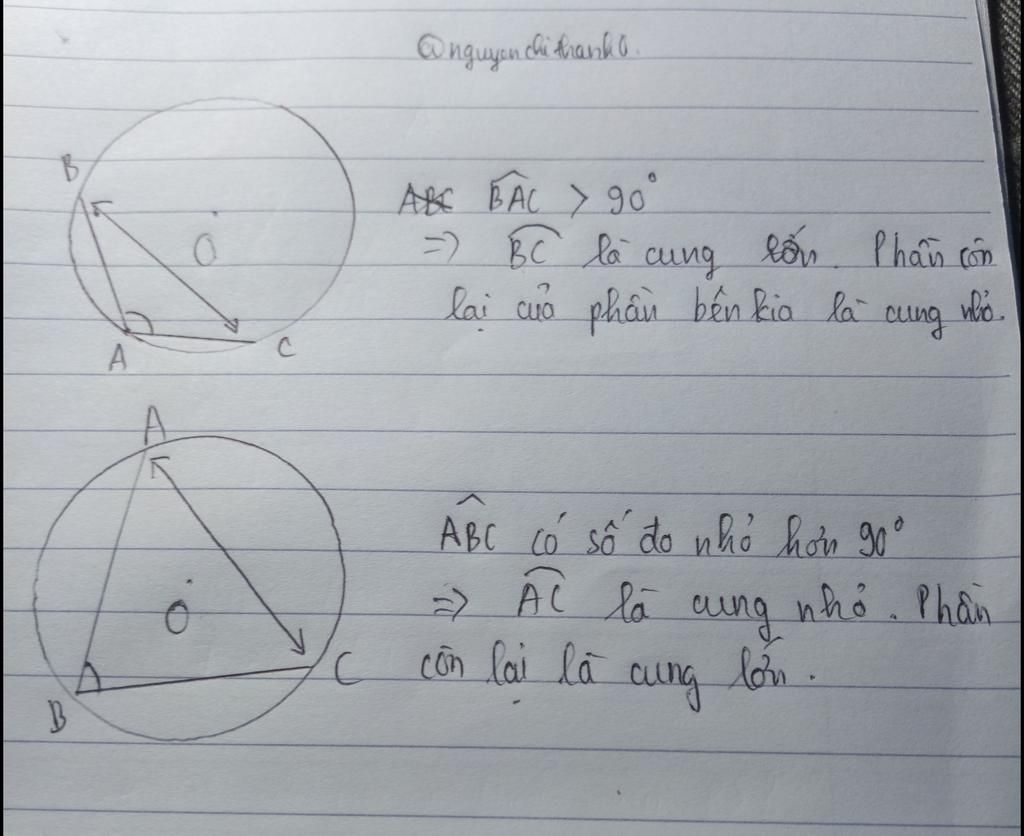 @nguyenchithanh0.
B
O
A
C
ABC BAC > 90°
=> BC là cung lớn. Phần còn
lại của phần bên kia là cung nhỏ.
A
O
B
C
ABC có số đo nhỏ hơn 90°
=> AC là cung nhỏ. Phần
còn lại là cung lớn.